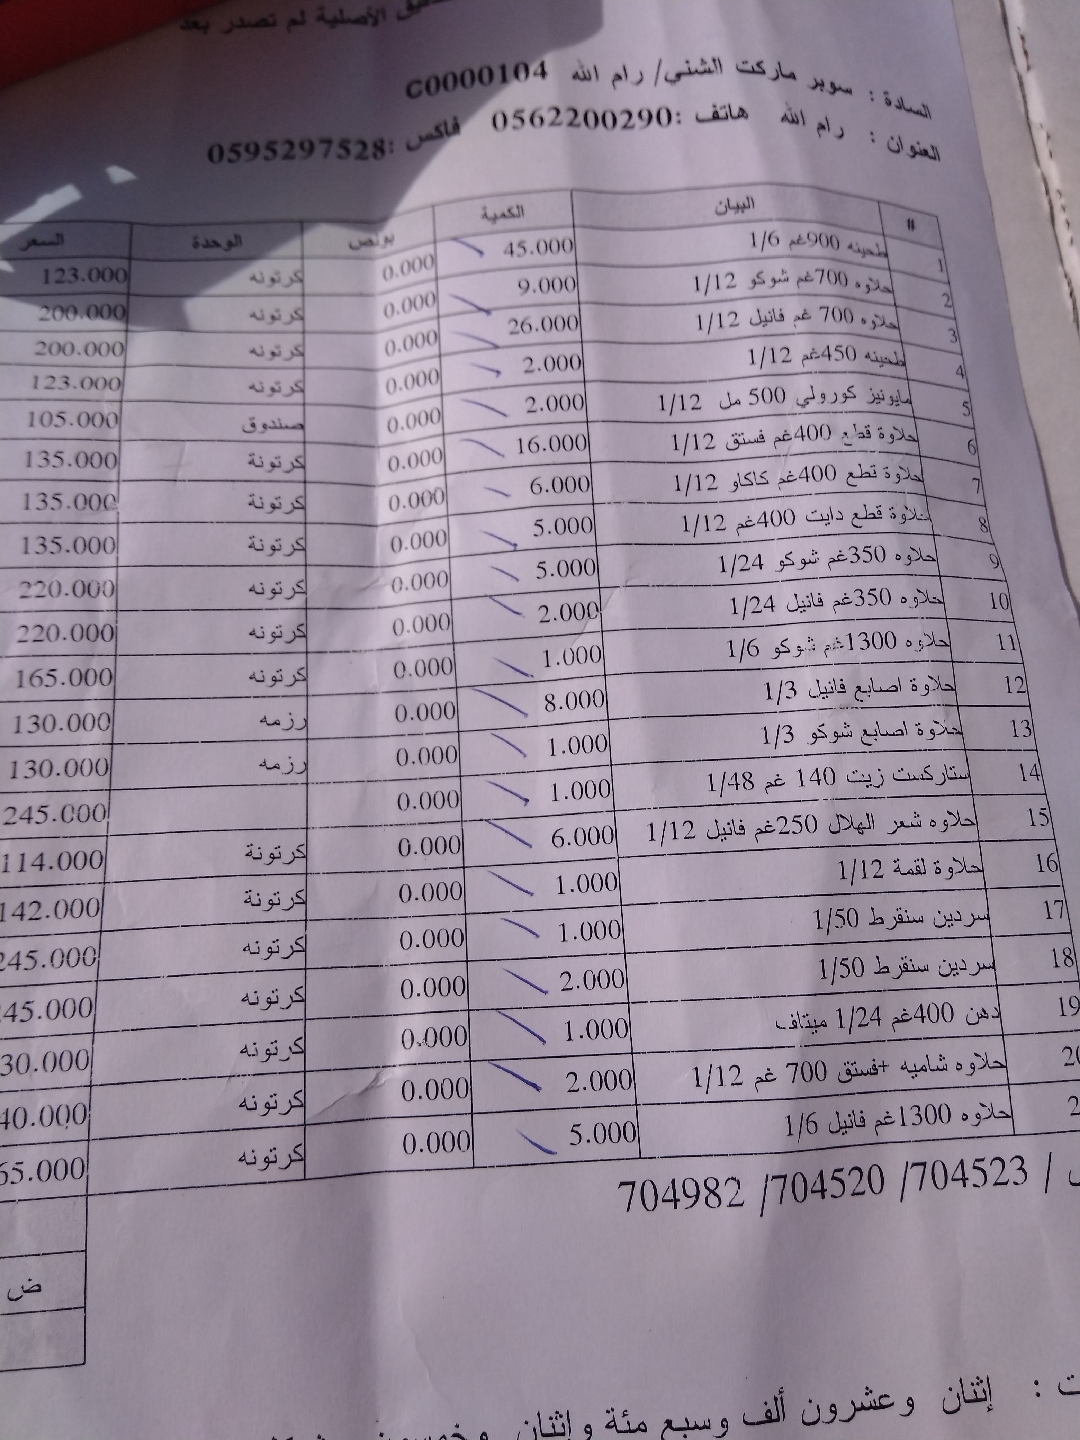 الأصلية لم تصدر بعد
السادة : سوبر ماركت الشني/ رام الله C0000104
العنوان : رام الله هاتف :0562200290 فاكس :0595297528
# البيان الكمية بونص الوحدة السعر
1 طحينه 900غم 1/6 45.000 0.000 كرتونه 123.000
2 حلاوه 700غم شوكو 1/12 9.000 0.000 كرتونه 200.000
3 حلاوه 700 غم فانيل 1/12 26.000 0.000 كرتونه 200.000
4 طحينه 450غم 1/12 2.000 0.000 كرتونه 123.000
5 مايونيز كورولي 500 مل 1/12 2.000 0.000 صندوق 105.000
6 حلاوة قطع 400غم فستق 1/12 16.000 0.000 كرتونة 135.000
7 حلاوة قطع 400غم كاكاو 1/12 6.000 0.000 كرتونة 135.000
8 حلاوة قطع دايت 400غم 1/12 5.000 0.000 كرتونة 135.000
9 حلاوه 350غم شوكو 1/24 5.000 0.000 كرتونه 220.000
10 حلاوه 350غم فانيل 1/24 2.000 0.000 كرتونه 220.000
11 حلاوه 1300غم شوكو 1/6 1.000 0.000 كرتونه 165.000
12 حلاوة اصابع فانيل 1/3 8.000 0.000 رزمه 130.000
13 حلاوة اصابع شوكو 1/3 1.000 0.000 رزمه 130.000
14 ستاركست زيت 140 غم 1/48 1.000 0.000 245.000
15 حلاوه شعر الهلال 250غم فانيل 1/12 6.000 0.000 كرتونة 114.000
16 حلاوة لقمة 1/12 1.000 0.000 كرتونة 142.000
17 سردين سنقرط 1/50 1.000 0.000 كرتونه 245.000
18 سردين سنقرط 1/50 2.000 0.000 كرتونه 45.000
19 دهن 400غم 1/24 ميتاف 1.000 0.000 كرتونه 30.000
20 حلاوه شاميه +فستق 700 غم 1/12 2.000 0.000 كرتونه 40.000
2 حلاوه 1300غم فانيل 1/6 5.000 0.000 كرتونه 65.000
/ 704523/ 704520/ 704982
ض
ت : إثنان وعشرون ألف وسبع مئة وإثنان وخمسون